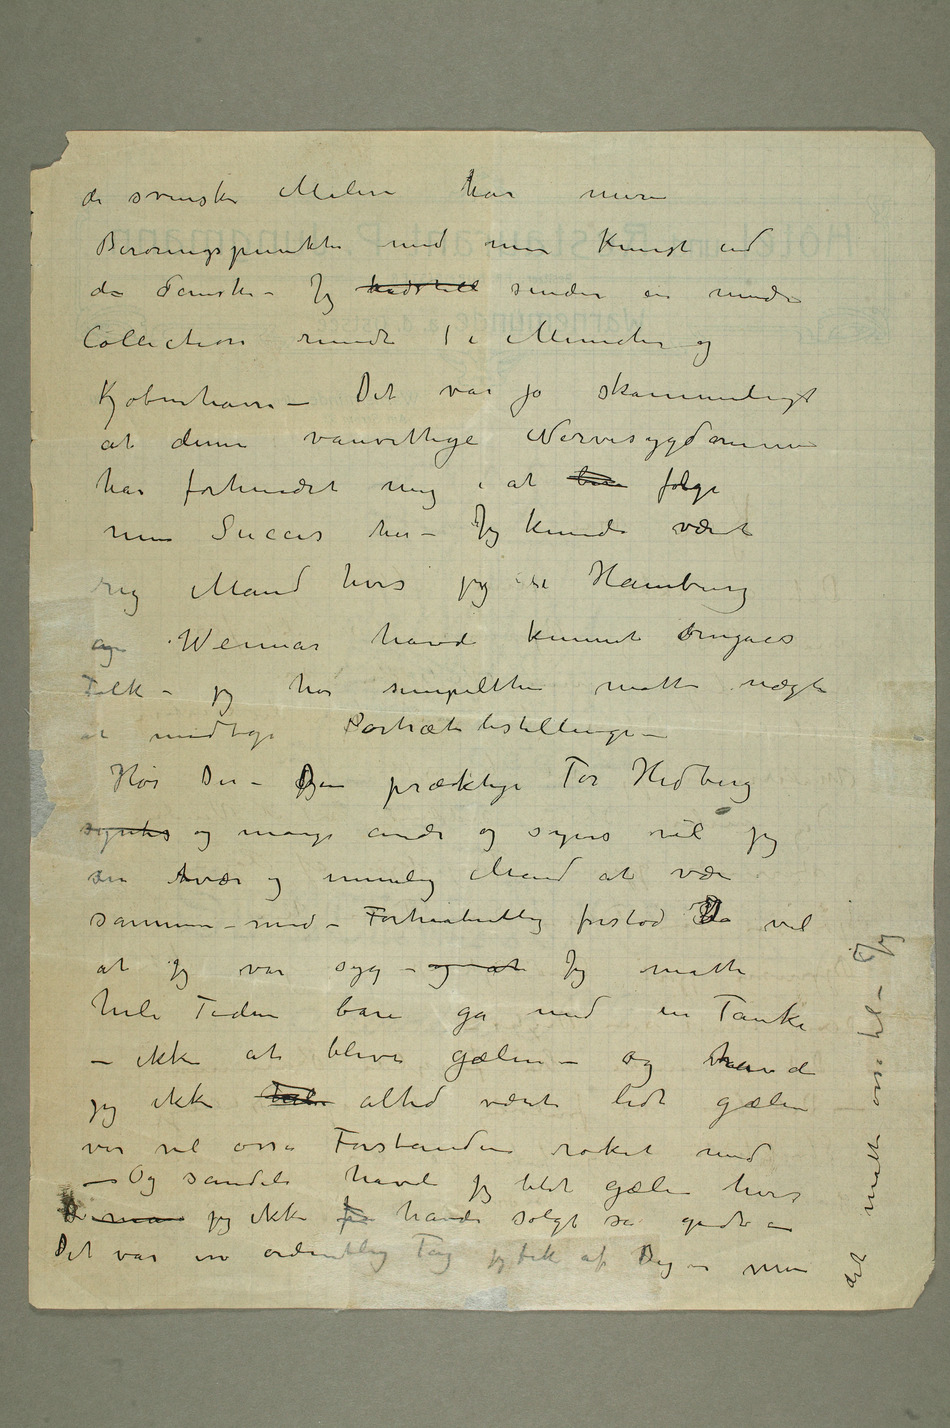 de svenske Malere har mere
Berøringspunkter med min Kunst end
de danske – Jeg hadstill sender en mindre
Collection rundt i München og
Kjøbenhavn – Det var jo skammeligt
at denne vanvittige Nervesygdommen
har forhindret mig i at føl følge
min Succes her – Jeg kunde været
rig Mand hvis jeg i Hamburg
og Weimar havde kunnet omgåes
Folk – jeg har simpelthen måtte nægte
at modtage Portrætbestillinger –
Hør Du – Den prægtige Tor Hedberg
syntes og mange andre og synes vel jeg
en tvær og umulig Mand at være
sammen – med – Forhåbentlig forstod Du vel
at jeg var syg – og at Jeg måtte
hele Tiden bare gå med en Tanke
– ikke at blive gælen – og havde
jeg ikke altid været lidt gælen
var vel osså Forstanden røket med
– Og sandelig havde jeg blit gælen hvis
De ma jeg ikke havde solgt så godt –
Det var en ordentlig Tag jeg fik af Dig – men
det måtte osså til – Jeg
Hôtel und Restaurant Jungmann
Warnemünde